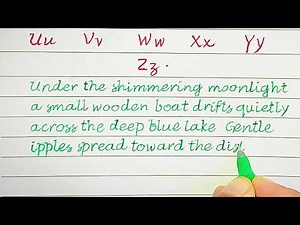 Uu Vv Ww Xx Yy
Zz.
Under the shimmering moonlight
a small wooden boat drifts quietly
across the deep blue lake Gentle
ipples spread toward the dis